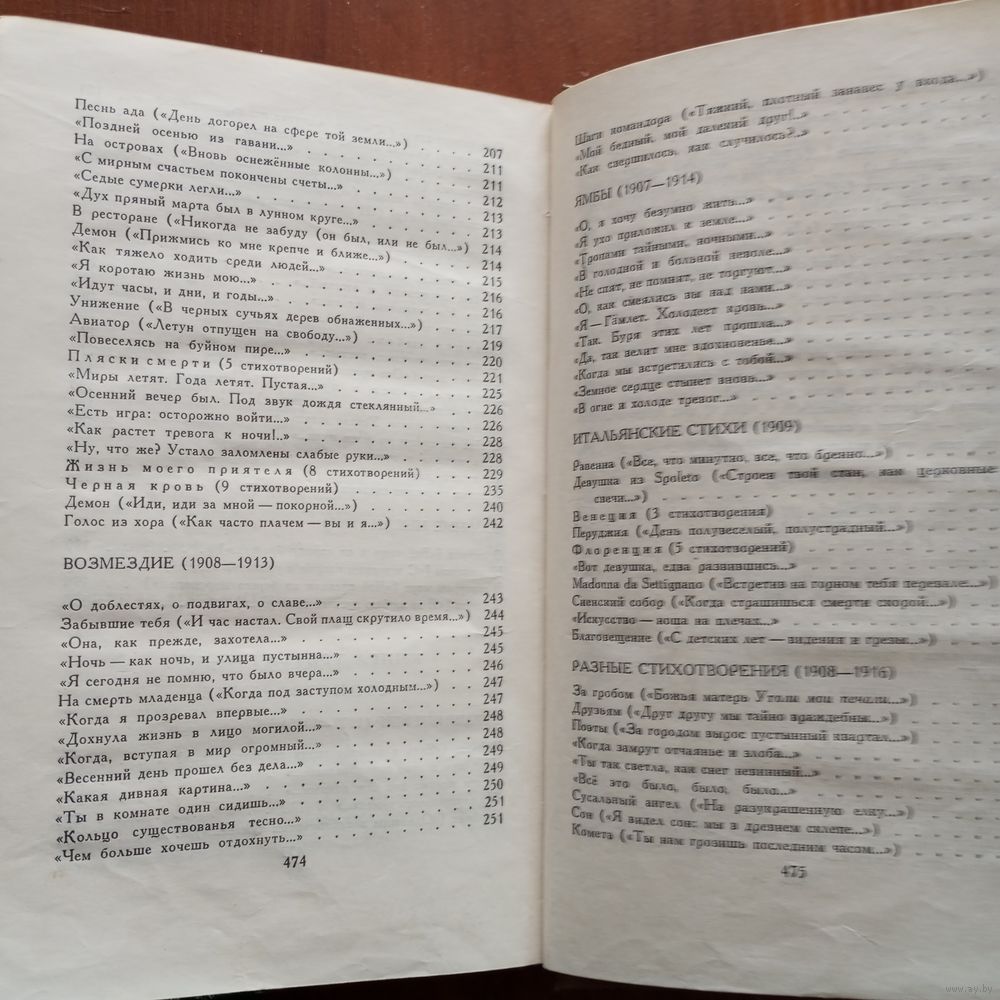 Песнь ада («День догорел на сфере той земли...») . . . . 207
«Поздней осенью из гавани...» . . . . 211
На островах («Вновь оснежённые колонны...») . . . . 211
«С мирным счастьем покончены счеты...» . . . . 212
«Седые сумерки легли...» . . . . 213
«Дух пряный марта был в лунном круге...» . . . . 213
В ресторане («Никогда не забуду (он был, или не был...») 214
Демон («Прижмись ко мне крепче и ближе...») . . . . 214
«Как тяжело ходить среди людей...» . . . . 215
«Я коротаю жизнь мою...» . . . . 216
«Идут часы, и дни, и годы...» . . . . 216
Унижение («В черных сучьях дерев обнаженных...») . . . . 217
Авиатор («Летун отпущен на свободу...») . . . . 219
«Повеселясь на буйном пире...» . . . . 220
Пляски смерти (5 стихотворений) . . . . 221
«Миры летят. Года летят. Пустая...» . . . . 225
«Осенний вечер был. Под звук дождя стеклянный...» . . 226
«Есть игра: осторожно войти...» . . . . 226
«Как растет тревога к ночи!..» . . . . 228
«Ну, что же? Устало заломлены слабые руки...» . . . . 228
Жизнь моего приятеля (8 стихотворений) . . . . 229
Черная кровь (9 стихотворений) . . . . 235
Демон («Иди, иди за мной — покорной...») . . . . 240
Голос из хора («Как часто плачем — вы и я...») . . . . 242
ВОЗМЕЗДИЕ (1908—1913)
«О доблестях, о подвигах, о славе...» . . . . 243
Забывшие тебя («И час настал. Свой плащ скрутило время...») 244
«Она, как прежде, захотела...» . . . . 245
«Ночь — как ночь, и улица пустынна...» . . . . 245
«Я сегодня не помню, что было вчера...» . . . . 246
На смерть младенца («Когда под заступом холодным...») . . 247
«Когда я прозревал впервые...» . . . . 247
«Дохнула жизнь в лицо могилой...» . . . . 248
«Когда, вступая в мир огромный...» . . . . 248
«Весенний день прошел без дела...» . . . . 249
«Какая дивная картина...» . . . . 249
«Ты в комнате один сидишь...» . . . . 250
«Кольцо существованья тесно...» . . . . 251
«Чем больше хочешь отдохнуть...» . . . . 251
474
Шаги командора («Тяжкий, плотный занавес у входа...»)
«Мой бедный, мой далекий друг!..»
«Как свершилось, как случилось?..»
ЯМБЫ (1907—1914)
«О, я хочу безумно жить...»
«Я ухо приложил к земле...»
«Тропами тайными, ночными...»
«В голодной и больной неволе...»
«Не спят, не помнят, не торгуют...»
«О, как смеялись вы над нами...»
«Я — Гамлет. Холодеет кровь...»
«Так. Буря этих лет прошла...»
«Да, так велит мне вдохновенье...»
«Когда мы встретились с тобой...»
«Земное сердце стынет вновь...»
«В огне и холоде тревог...»
ИТАЛЬЯНСКИЕ СТИХИ (1909)
Равенна («Все, что минутно, все, что бренно...»)
Девушка из Spoleto («Строен твой стан, как церковные
свечи...»)
Венеция (3 стихотворения)
Перуджия («День полувеселый, полустрадный...»)
Флоренция (5 стихотворений)
«Вот девушка, едва развившись...»
Madonna da Settignano («Встретив на горном тебя перевале...»)
Сиенский собор («Когда страшишься смерти скорой...»)
«Искусство — ноша на плечах...»
Благовещение («С детских лет — видения и грезы...»)
РАЗНЫЕ СТИХОТВОРЕНИЯ (1908—1916)
За гробом («Божья матерь Утоли мои печали...»)
Друзьям («Друг другу мы тайно враждебны...»)
Поэты («За городом вырос пустынный квартал...»)
«Когда замрут отчаянье и злоба...»
«Ты так светла, как снег невинный...»
«Всё это было, было, было...»
Сусальный ангел («На разукрашенную елку...»)
Сон («Я видел сон: мы в древнем склепе...»)
Комета («Ты нам грозишь последним часом...»)
475
www.ay.by